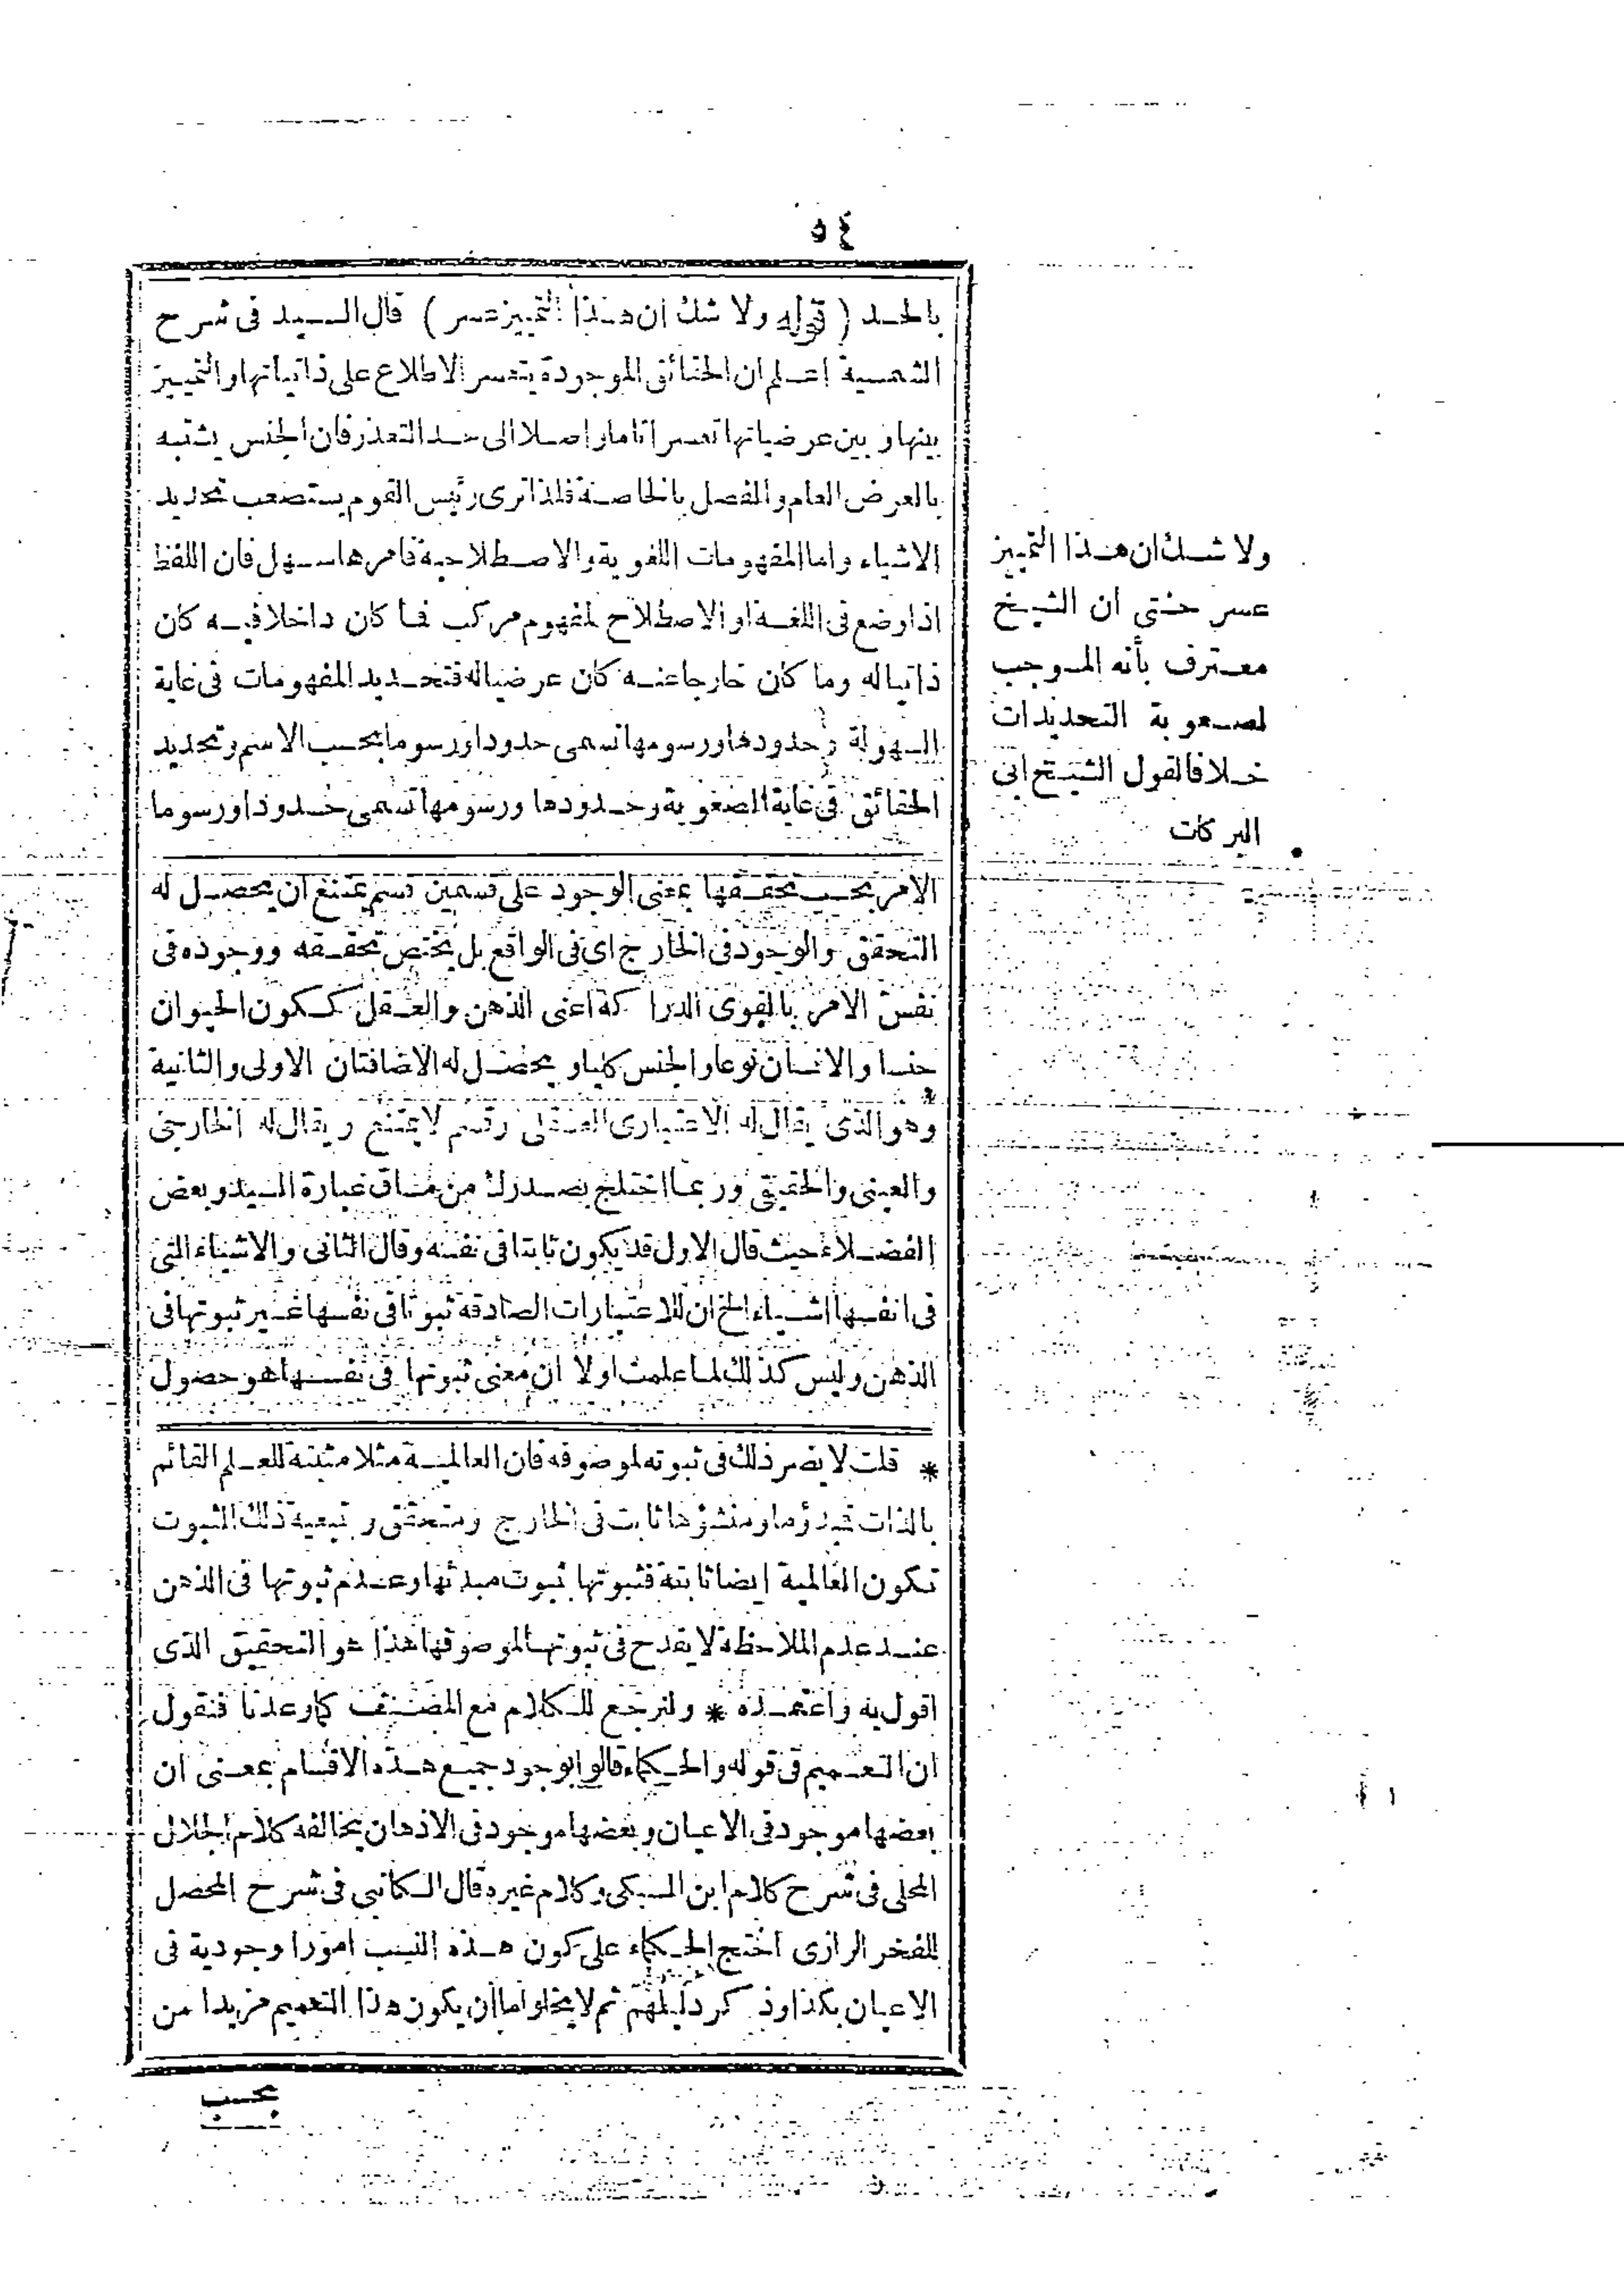 ٥٤
بالحد ( قوله ولا شك ان هذا التمييز عسر ) قال السيد فى شرح
الشمسية اعلم ان الحقائق الموجودة يتعسر الاطلاع على ذاتياتها والتمييز
بينها وبين عرضياتها تعسرا تاما واصلا الى حد التعذر فان الجنس يشتبه
بالعرض العام والفصل بالخاصة فلذا ترى رئيس القوم يستصعب تحديد
الاشياء واما المفهومات اللغوية والاصطلاحية فامرها سهل فان اللفظ
اذا وضع فى اللغة او الاصطلاح لمفهوم مركب فما كان داخلا فيه كان
ذاتيا له وما كان خارجا عنه كان عرضيا له فتحديد المفهومات فى غاية
السهولة وحدودها ورسومها تسمى حدودا ورسوما بحسب الاسم وتحديد
الحقائق فى غاية الصعوبة وحدودها ورسومها تسمى حدودا ورسوما
ولا شك ان هذا التمييز
عسر حتى ان الشيخ
معترف بأنه الموجب
لصعوبة التحديدات
خلافا لقول الشيخ ابى
البركات
الامر بحسب تحققها بمعنى الوجود على قسمين قسم يمتنع ان يحصل له
التحقق والوجود فى الخارج اى فى الواقع بل يختص تحققه ووجوده فى
نفس الامر بالقوى الدراكة اعنى الذهن والعقل ككون الحيوان
جنسا والانسان نوعا والجنس كليا ويحصل له الاضافتان الاولى والثانية
وهو الذى يقال له الاعتبارى العقلى وقسم لا يمتنع ويقال له الخارجى
والعينى والحقيقى وربما اختلج بصدرك من مساق عبارة السيد وبعض
الفضلاء حيث قال الاول قد يكون ثابتا فى نفسه وقال الثانى والاشياء التى
فى انفسها اشياء الخ ان للاعتبارات الصادقة ثبوتا فى نفسها غير ثبوتها فى
الذهن وليس كذلك لما علمت اولا ان معنى ثبوتها فى نفسها هو حصول
* قلت لا يضر ذلك فى ثبوته لموصوفه فان العالمية مثلا مثبتة للعلم القائم
بالذات فمبدؤها ومنشؤها ثابت فى الخارج ومتحقق وبتبعية ذلك الثبوت
تكون العالمية ايضا ثابتة فثبوتها ثبوت مبدئها وعدم ثبوتها فى الذهن
عند عدم الملاحظة لا يقدح فى ثبوتها لموصوفها هذا هو التحقيق الذى
اقول به واعتمده * ولنرجع للكلام مع المصنف كما وعدنا فنقول
ان التعميم فى قوله والحكماء قالوا بوجود جميع هذه الاقسام بمعنى ان
بعضها موجود فى الاعيان وبعضها موجود فى الاذهان يخالفه كلام الجلال
المحلى فى شرح كلام ابن السبكى وكلام غيره قال الكاتبى فى شرح المحصل
للفخر الرازى احتج الحكماء على كون هذه النسب امورا وجودية فى
الاعيان بكذا وذكر دليلهم ثم لا يخلو اما ان يكون هذا التعميم مزيدا من
بحسب